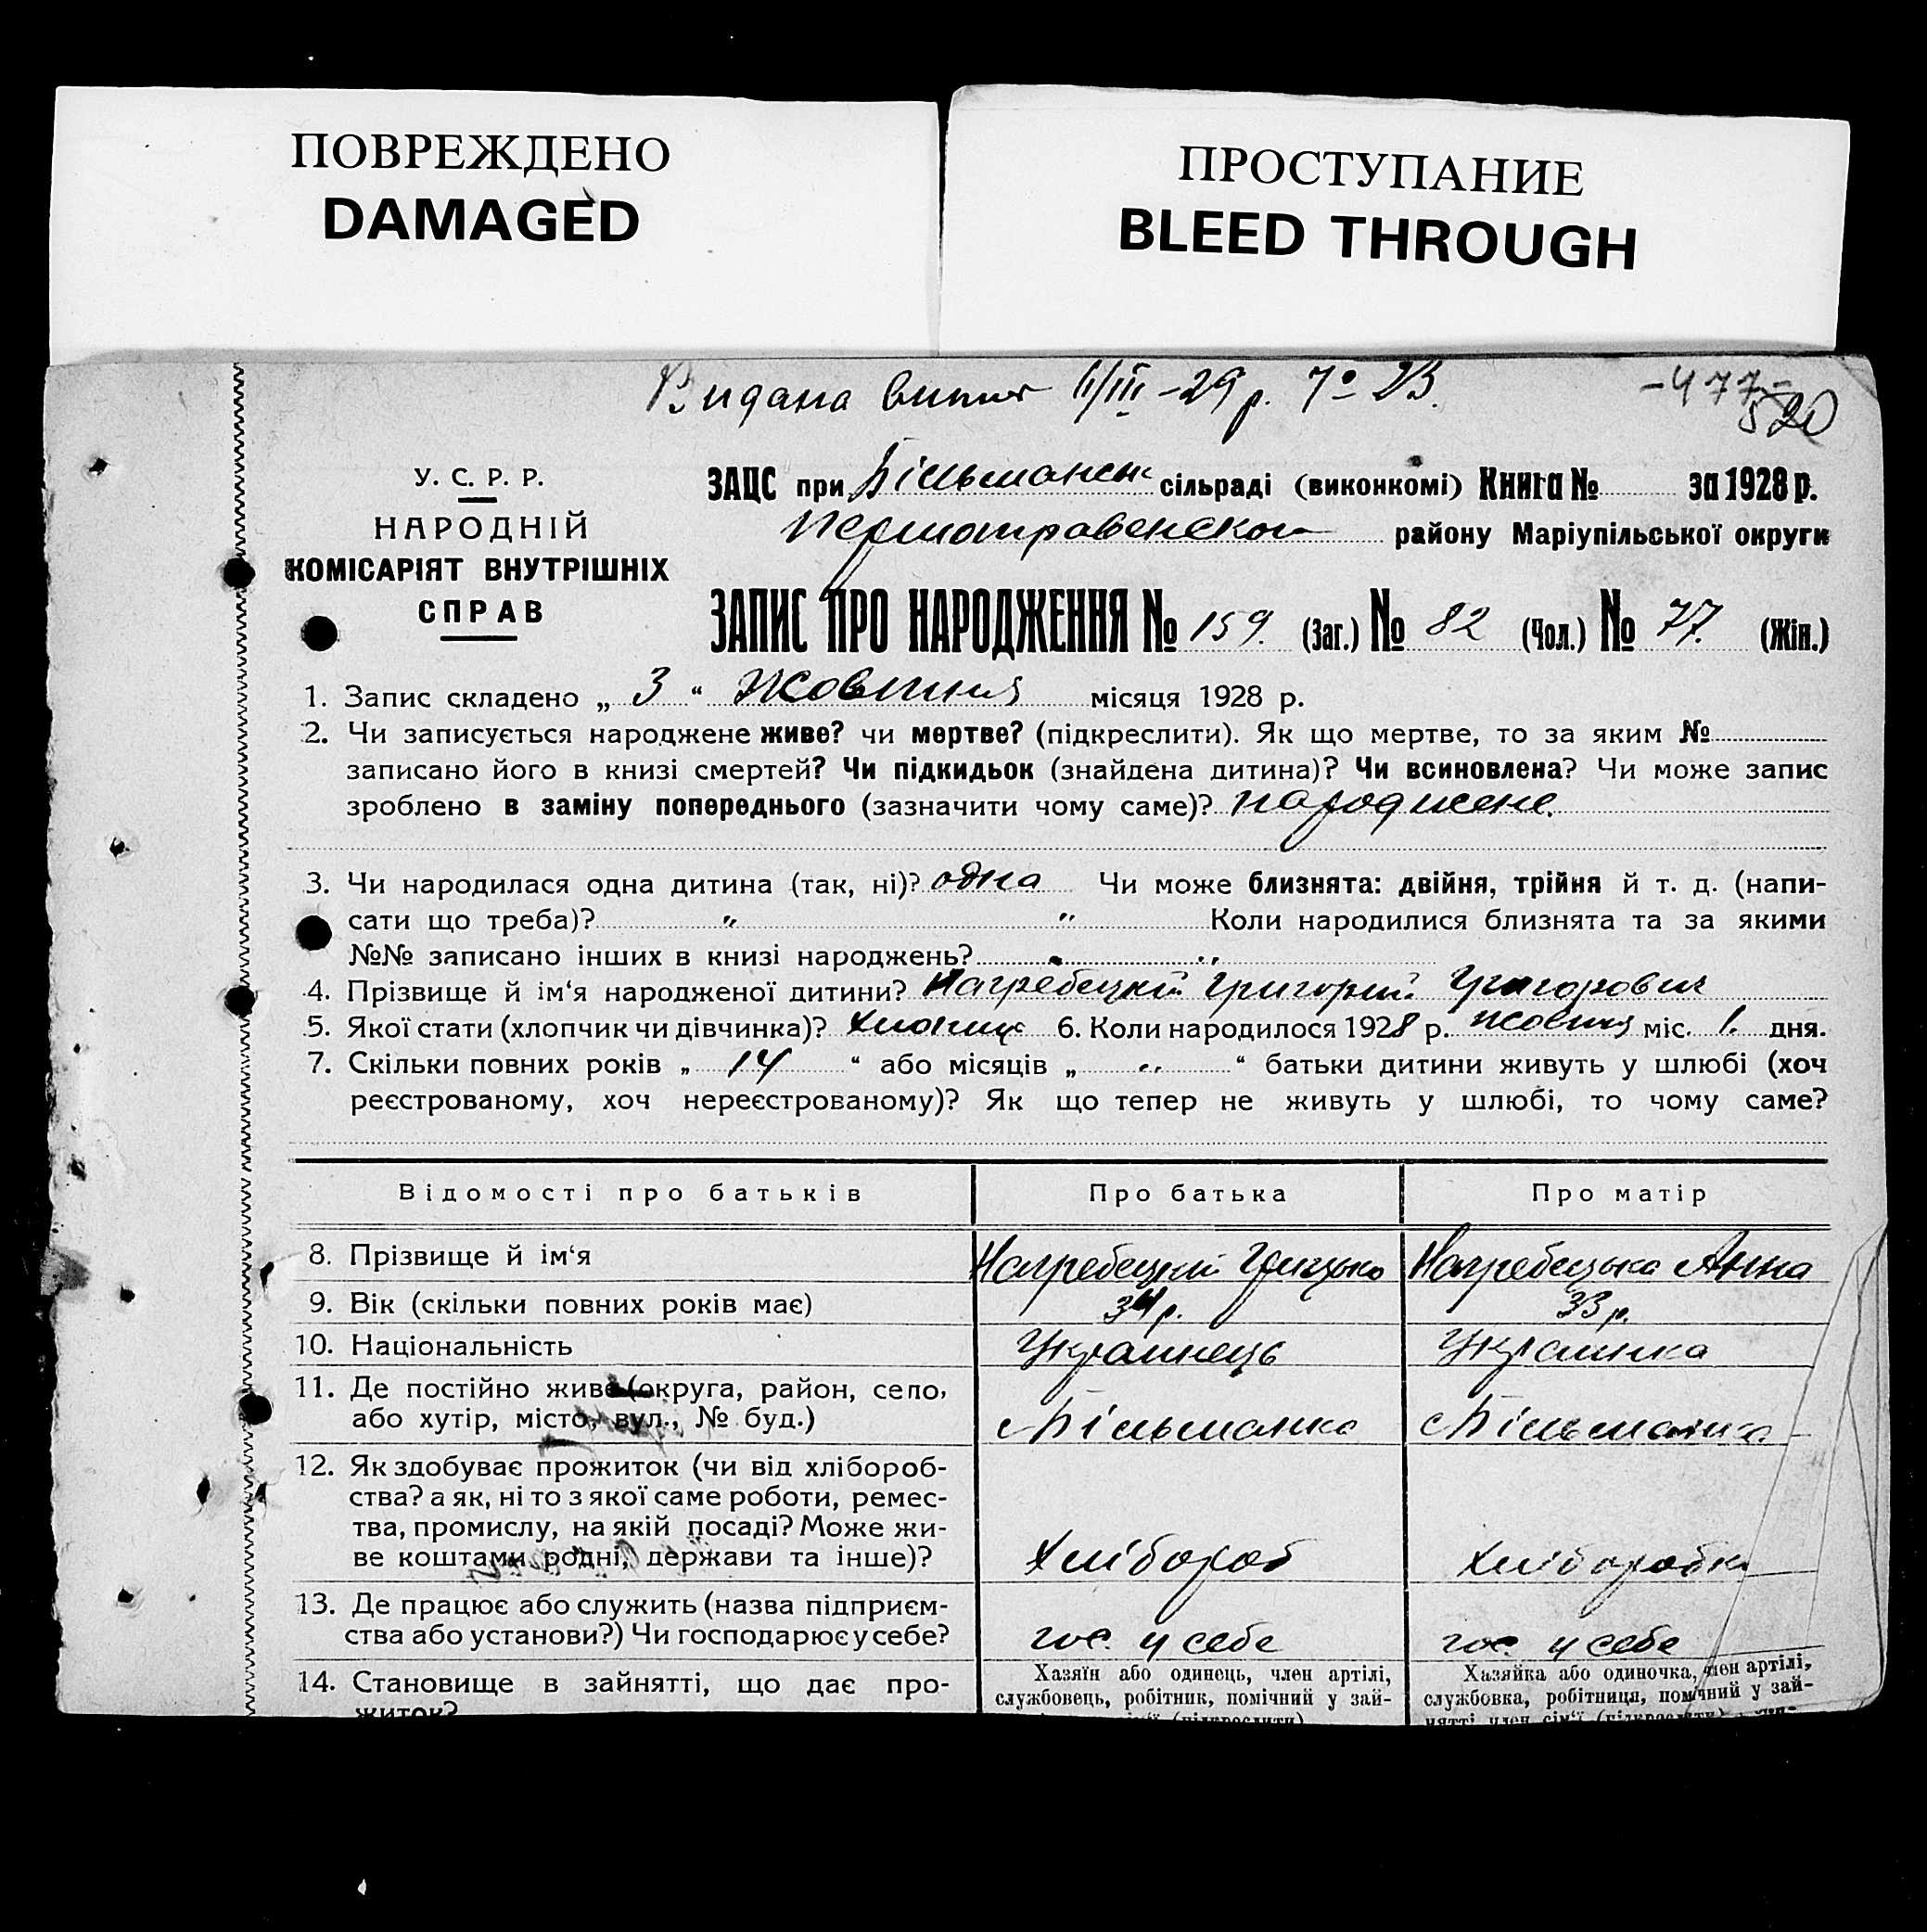 ПОВРЕЖДЕНО
DAMAGED
ПРОСТУПАНИЕ
BLEED THROUGH
Видана 11/III-29 р. № 23.
-477-
520
У. С. Р. Р.
НАРОДНІЙ
КОМІСАРІЯТ ВНУТРІШНІХ
СПРАВ
ЗАЦС при Більманськ сільраді (виконкомі) Книга № за 1928 р.
району Маріупільської округи
ЗАПИС ПРО НАРОДЖЕННЯ № 159. (Заг.) № 82 (Чол.) № 77. (Жін.)
1. Запис складено „ 3 “ Жовтня місяця 1928 р.
2. Чи записується народжене живе? чи мертве? (підкреслити). Як що мертве, то за яким №
записано його в книзі смертей? Чи підкидьок (знайдена дитина)? Чи всиновлена? Чи може запис
зроблено в заміну попереднього (зазначити чому саме)? народжене.
3. Чи народилася одна дитина (так, ні)? одна Чи може близнята: двійня, трійня й т. д. (напи-
сати що треба)? " " Коли народилися близнята та за якими
№№ записано інших в книзі народжень? " "
4. Прізвище й ім‘я народженої дитини? Нагребецкий Григорий Григорович
5. Якої стати (хлопчик чи дівчинка)? хлопчик 6. Коли народилося 1928 р. жовтня міс. 1. дня.
7. Скільки повних років „ 14 “ або місяців „ " “ батьки дитини живуть у шлюбі (хоч
реєстрованому, хоч нереєстрованому)? Як що тепер не живуть у шлюбі, то чому саме?
Відомості про батьків Про батька Про матір
8. Прізвище й ім‘я Нагребецкий Грицько Нагребецька Анна
9. Вік (скільки повних років має) 34 р. 33 р.
10. Національність Украинець Украинка
11. Де постійно живе (округа, район, село,
або хутір, місто, вул., № буд.) с Більманка с Більманка
12. Як здобуває прожиток (чи від хлібороб-
ства? а як, ні то з якої саме роботи, ремес-
тва, промислу, на якій посаді? Може жи-
ве коштами родні, держави та інше)? Хлібороб Хліборобка
13. Де працює або служить (назва підприєм-
ства або установи?) Чи господарює у себе? гос. у себе гос. у себе
14. Становище в зайнятті, що дає про-
житок?
Хазяїн або одинець, член артілі,
службовець, робітник, помічний у зай-
Хазяйка або одиночка, член артілі,
службовка, робітниця, помічний у зай-